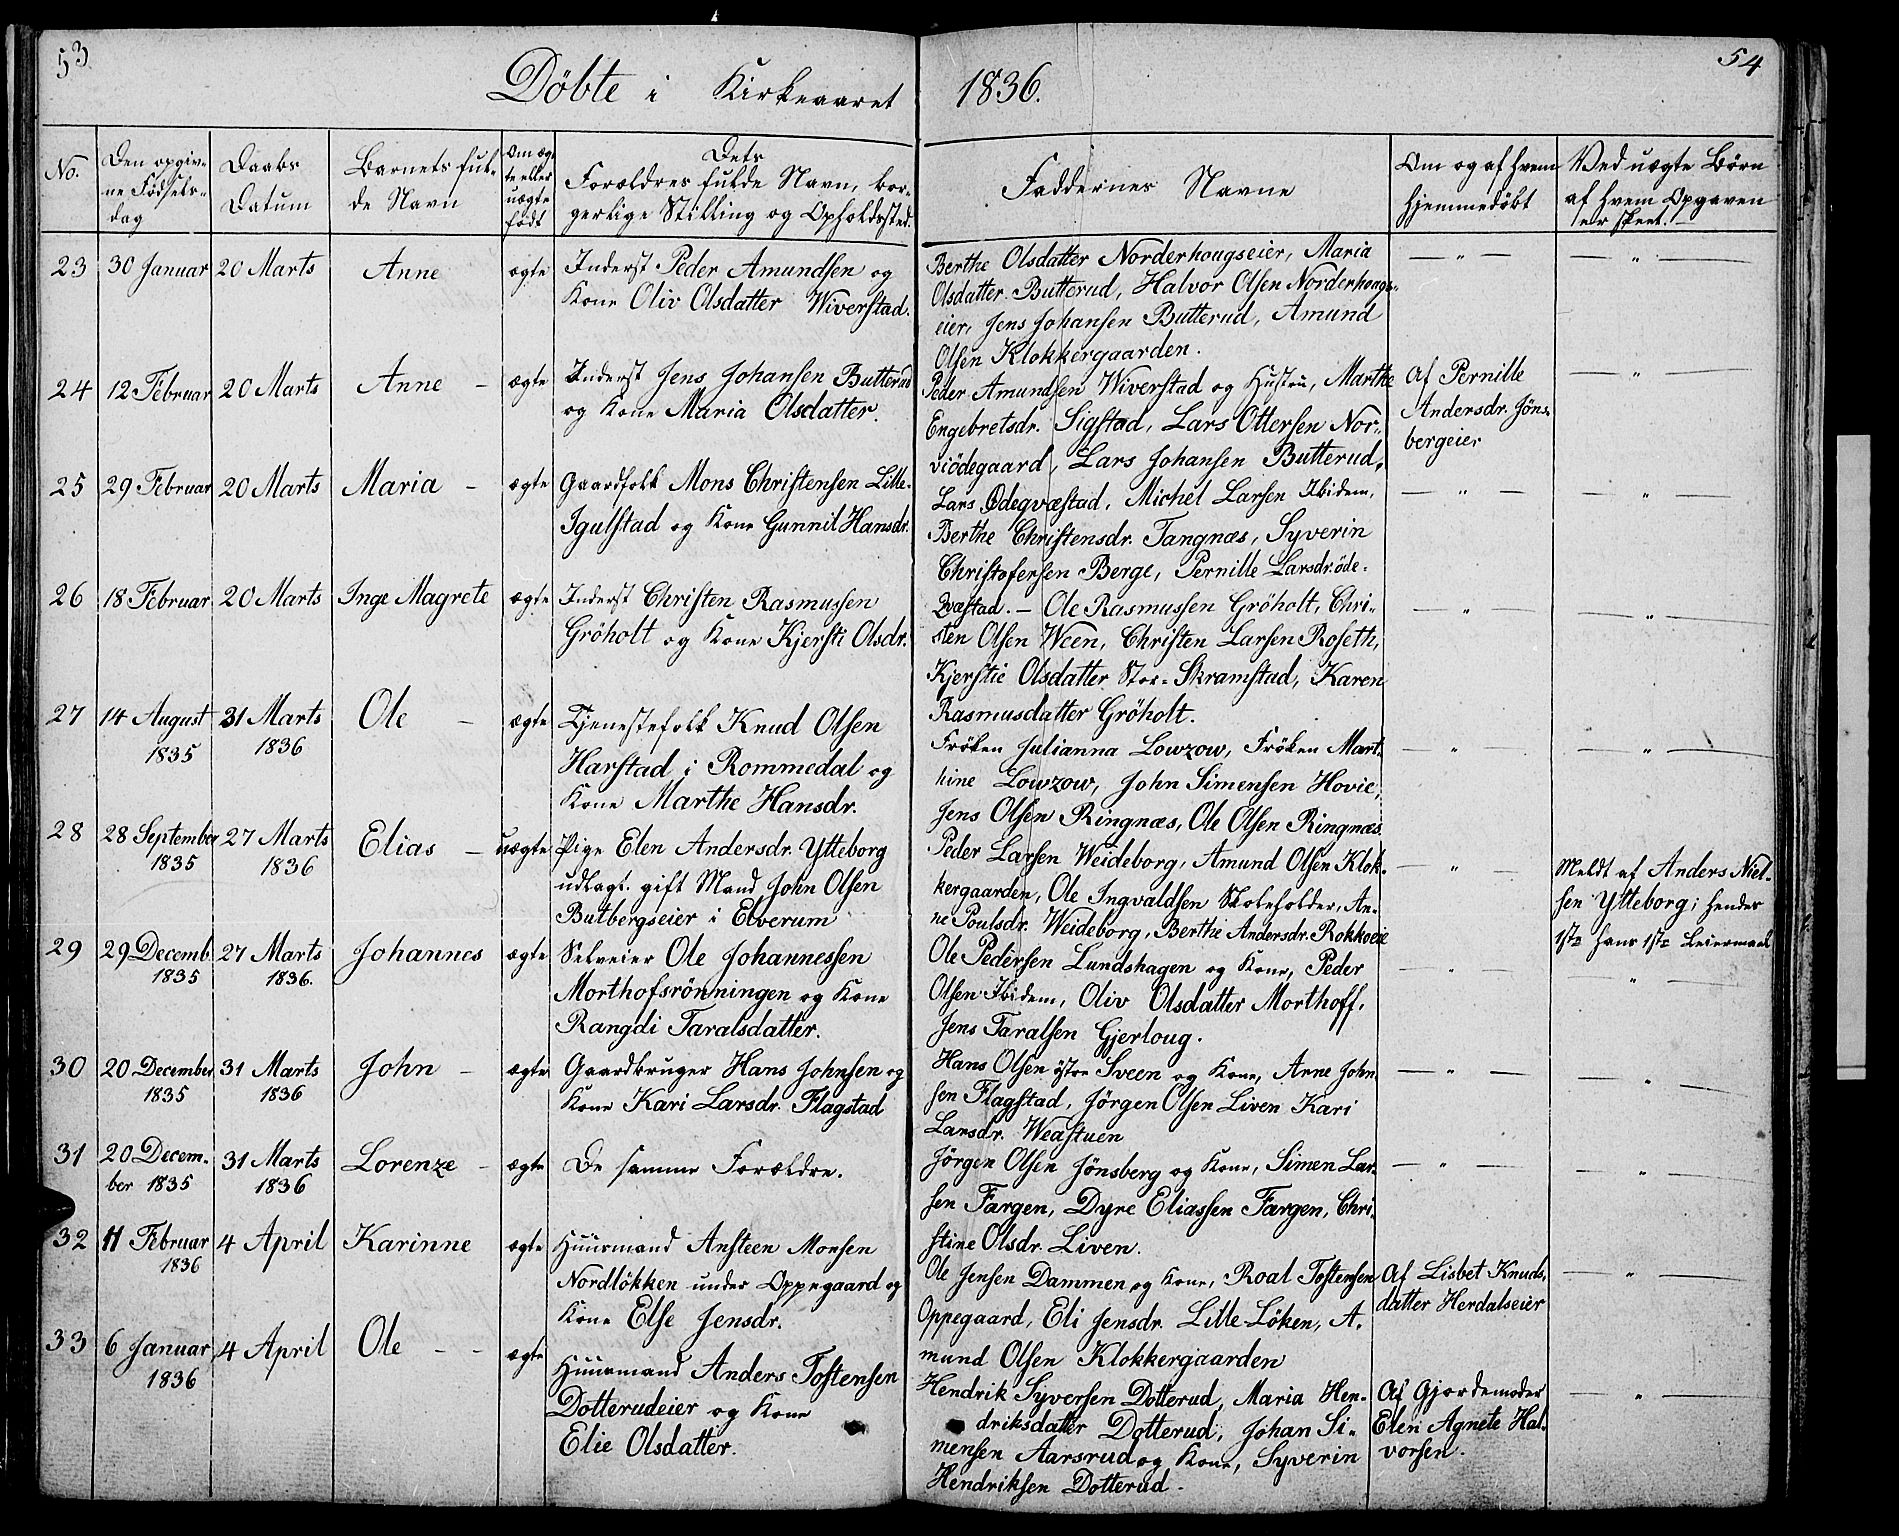 53
54
Döbte i Kirkeaaret 1836.
No.
Den opgiv-
ne Födsels-
dag
Daabs
Datum
Barnets ful-
de Navn
Om æg-
te eller
uægte
født
Dets
Forældres fulde Navn, bor-
gerlige Stilling og Opholdssted.
Faddernes Navne
Om og af hvem
hjemmedöbt
Ved uægte Börn
af hvem Opgaven
er skeet.
23 30 Januar 20 Marts Anne ægte Inderst Peder Amundsen og
Kone Oliv Olsdatter Wiverstad.
Berthe Olsdatter Norderhougseier, Maria
Olsdatter Butterud, Halvor Olsen Norderhougs-
eier, Jens Johansen Butterud, Amund
Olsen Klokkergaarden.
— " — — " —
24 12 Februar 20 Marts Anne – ægte Inderst Jens Johansen Butterud
og Kone Maria Olsdatter.
Peder Amundsen Wiverstad og Hustru, Marthe
Engebretsdr. Sigstad, Lars Ottersen Nor-
viödegaard, Lars Johansen Butterud.
Af Pernille
Andersdr. Jöns-
bergeier
— " —
25 29 Februar 20 Marts Maria – ægte Gaardfolk Mons Christensen Lille-
Igulstad og Kone Gunnil Hansdr.
Lars Ödeqvæstad, Michel Larsen Ibidem,
Berthe Christensdr. Tangnæs, Syverin
Christofersen Berge, Pernille Larsdr. öde-
Qvæstad. –
— " — — " —
26 18 Februar 20 Marts Inge Magrete ægte Inderst Christen Rasmussen
Gröholt og Kone Kjersti Olsdr.
Ole Rasmussen Gröholt, Chri-
sten Olsen Ween, Christen Larsen Roseth,
Kjerstie Olsdatter Stor-Skramstad, Karen
Rasmusdatter Gröholt.
— " — — " —
27 14 August
1835
31 Marts
1836
Ole – ægte Tjenestefolk Knud Olsen
Harstad i Rommedal og
Kone Marthe Hansdr.
Fröken Julianna Lowzow, Fröken Mart-
hine Lowzow, John Simensen Hovie,
Jens Olsen Ringnæs, Ole Olsen Ringnæs.
— " — — " —
28 28 September
1835
27 Marts
1836
Elias – uægte Pige Elen Andersdr. Ytteborg
udlagt gift Mand John Olsen
Butbergseier i Elverum
Peder Larsen Weideborg, Amund Olsen Klok-
kergaarden, Ole Ingvaldsen Skoleholder, An-
ne Poulsdr. Weideborg, Berthe Andersdr. Rokkoeie
— " —
Meldt af Anders Niel-
sen Ytteborg; hendes
1ste hans 1ste Leiermaal
29 29 Decemb.
1835
27 Marts
1836.
Johannes ægte Selveier Ole Johannessen
Morthofsrönningen og Kone
Rangdi Taralsdatter.
Ole Pedersen Lundshagen og Kone, Peder
Olsen Ibidem, Oliv Olsdatter Morthoff,
Jens Taralsen Gjerloug.
— " — — " —
30 20 December
1835
31 Marts
1836
John – ægte Gaardbruger Hans Johnsen og
Kone Kari Larsdr. Flagstad
Hans Olsen östre Sveen og Kone, Arne John-
sen Flagstad, Jörgen Olsen Liven Kari
Larsdr. Weastuen
— " — — " —
31 20 Decem-
ber 1835
31 Marts
1836
Lorenze – ægte De samme Forældre.
Jörgen Olsen Jönsberg og Kone, Simen Lar-
sen Færgen, Dyre Eliassen Færgen, Chri-
stine Olsdr. Liven.
— " — — " —
32 11 Februar
1836
4 April Karinne ægte Huusmand Ansteen Monsen
Nordlökken under Oppegaard og
Kone Else Jensdr.
Ole Jensen Dammen og Kone, Roal Tostensen
Oppegaard, Eli Jensdr. Lille-Löken, A-
mund Olsen Klokkergaarden
Af Lisbet Knuds-
datter Herdalseier
— " —
33 6 Januar
1836
4 April Ole – – ægte Huusmand Anders Tostensen
Dotterudeier og Kone
Elie Olsdatter.
Hendrik Syversen Dotterud, Maria Hen-
driksdatter Dotterud, Johan Si-
mensen Aarsrud og Kone, Syverin
Hendriksen Dotterud.
Af Gjordemoder
Elen Agnete Hal-
vorsen.
— " —